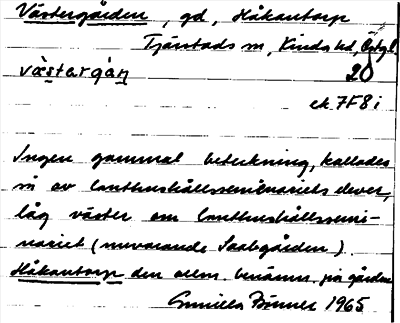 Västergården, gd, Håkantorp
Tjärstads sn, Kinds hd, Östgl.
västergån 20
ek 7F8i
Ingen gammal beteckning, kallades
så av lanthushållsseminariets elever,
låg väster om lanthushållssemi-
nariet (nuvarande Saabgården).
Håkantorp den allm. benämn. på gården
Gunilla 1965